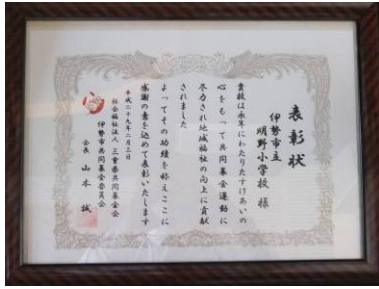 表彰状
伊勢市立
明野小学校 様
貴校は永年にわたりたすけあいの
心をもって共同募金運動に
尽力され地域福祉の向上に貢献
されました
よってその功績を称えここに
感謝の意を込めて表彰いたします
平成二十九年二月三日
社会福祉法人 三重県共同募金会
伊勢市共同募金委員会
会長 山本 誠